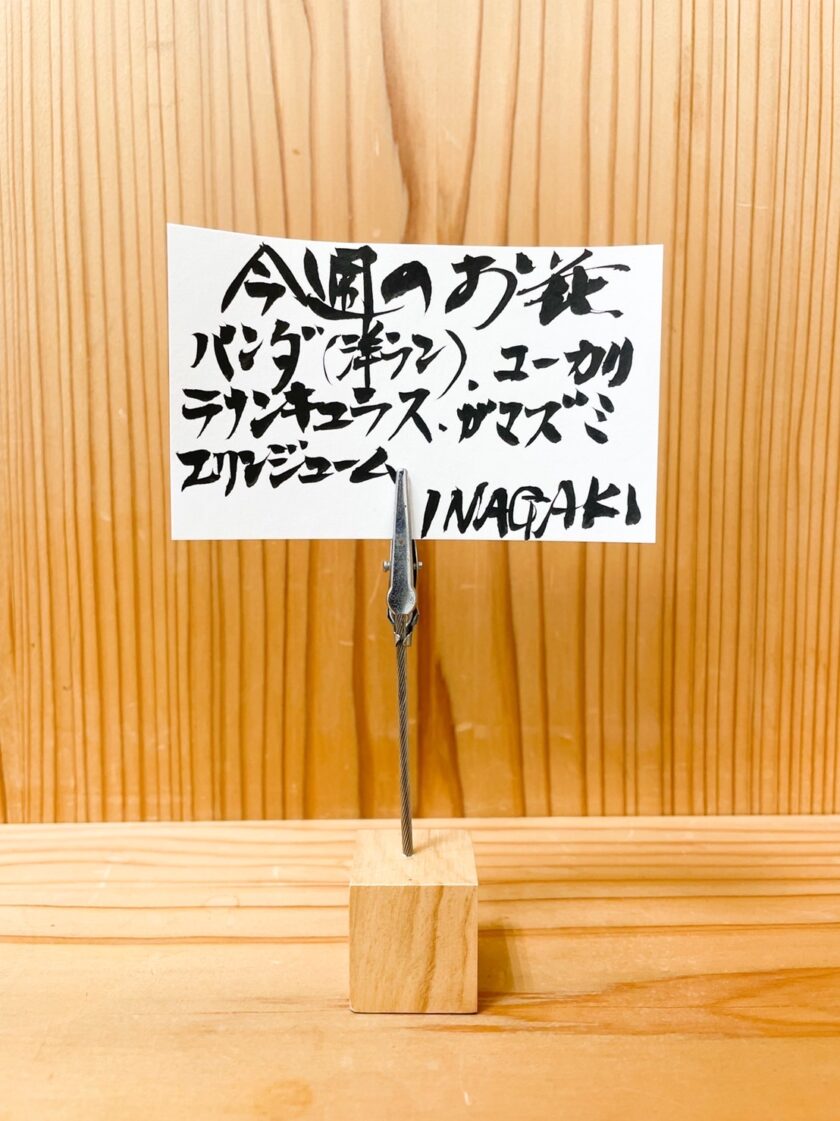 今週のお花
パンダ(洋ラン)、ユーカリ
ラナンキュラス、ガマズミ
エリンジューム
INAGAKI